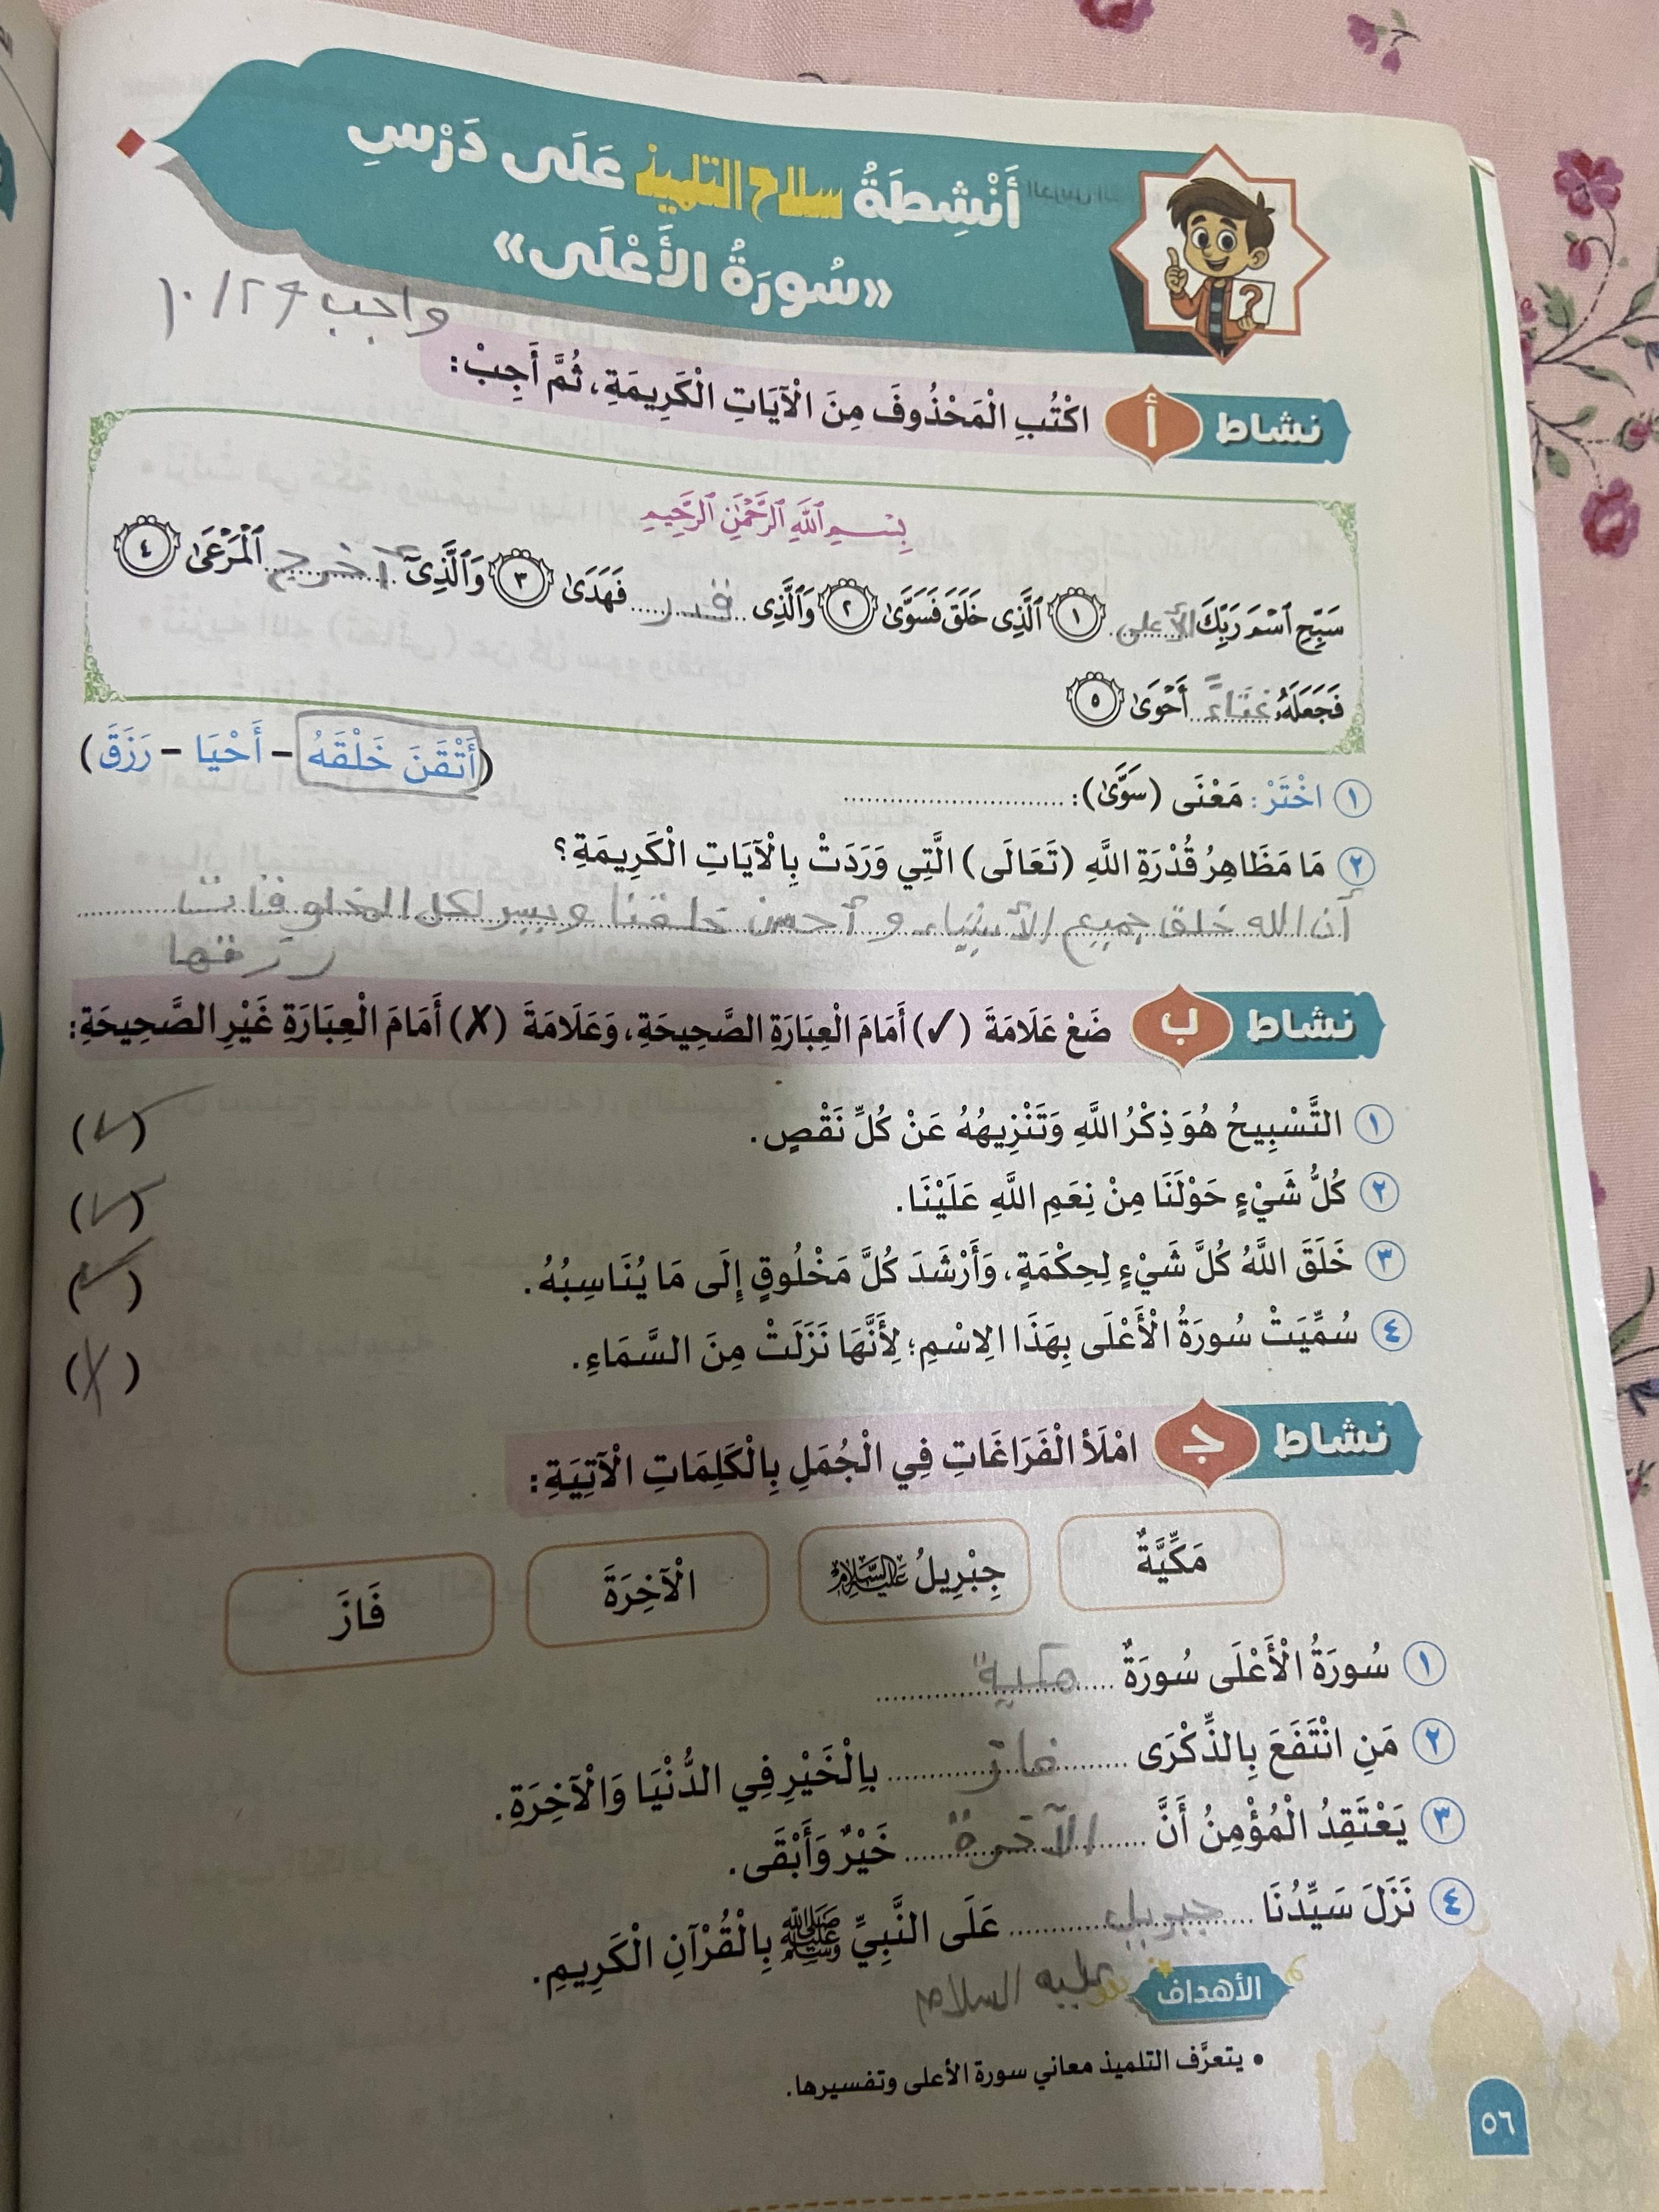 أَنْشِطَةُ سلاح التلميذ عَلَى دَرْسِ
«سُورَةُ الأَعْلَى»
واجب ٢٩/١٠
نشاط أ اكْتُبِ الْمَحْذُوفَ مِنَ الْآيَاتِ الْكَرِيمَةِ، ثُمَّ أَجِبْ:
بِسْمِ ٱللَّهِ ٱلرَّحْمَٰنِ ٱلرَّحِيمِ
سَبِّحِ ٱسْمَ رَبِّكَ الأعلى ١ ٱلَّذِى خَلَقَ فَسَوَّىٰ ٢ وَٱلَّذِى قدر فَهَدَىٰ ٣ وَٱلَّذِىٓ أخرج ٱلْمَرْعَىٰ ٤
فَجَعَلَهُۥ غثاءً أَحْوَىٰ ٥
١ اخْتَرْ: مَعْنَى (سَوَّىٰ): .............. (أَتْقَنَ خَلْقَهُ - أَحْيَا - رَزَقَ)
٢ مَا مَظَاهِرُ قُدْرَةِ اللَّهِ (تَعَالَى) الَّتِي وَرَدَتْ بِالْآيَاتِ الْكَرِيمَةِ؟
أن الله خلق جميع الأشياء و أحسن خلقنا و يسر لكل المخلوقات
رزقها
نشاط ب ضَعْ عَلَامَةَ (✓) أَمَامَ الْعِبَارَةِ الصَّحِيحَةِ، وَعَلَامَةَ (✗) أَمَامَ الْعِبَارَةِ غَيْرِ الصَّحِيحَةِ:
١ التَّسْبِيحُ هُوَ ذِكْرُ اللَّهِ وَتَنْزِيهُهُ عَنْ كُلِّ نَقْصٍ. (✓)
٢ كُلُّ شَيْءٍ حَوْلَنَا مِنْ نِعَمِ اللَّهِ عَلَيْنَا. (✓)
٣ خَلَقَ اللَّهُ كُلَّ شَيْءٍ لِحِكْمَةٍ، وَأَرْشَدَ كُلَّ مَخْلُوقٍ إِلَى مَا يُنَاسِبُهُ. (✓)
٤ سُمِّيَتْ سُورَةُ الْأَعْلَى بِهَذَا الِاسْمِ؛ لِأَنَّهَا نَزَلَتْ مِنَ السَّمَاءِ. (✗)
نشاط ج امْلَأِ الْفَرَاغَاتِ فِي الْجُمَلِ بِالْكَلِمَاتِ الْآتِيَةِ:
مَكِّيَّةٌ جِبْرِيلُ عَلَيْهِ السَّلَامُ الْآخِرَةَ فَازَ
١ سُورَةُ الْأَعْلَى سُورَةٌ مكية
٢ مَنِ انْتَفَعَ بِالذِّكْرَى فاز بِالْخَيْرِ فِي الدُّنْيَا وَالْآخِرَةِ.
٣ يَعْتَقِدُ الْمُؤْمِنُ أَنَّ الآخرة خَيْرٌ وَأَبْقَى.
٤ نَزَلَ سَيِّدُنَا جبريل عَلَى النَّبِيِّ ﷺ بِالْقُرْآنِ الْكَرِيمِ.
عليه السلام
الأهداف
• يتعرَّف التلميذ معاني سورة الأعلى وتفسيرها.
٥٦